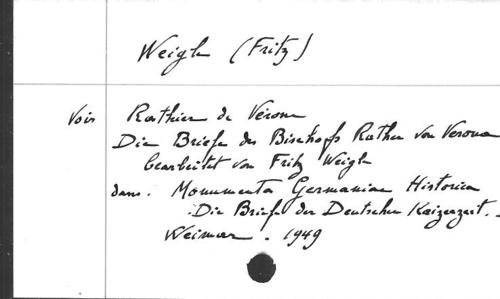 Weigle (Fritz)
Voir Rathier de Vérone
Die Briefe des Bischofs Rather von Verona
bearbeitet von Fritz Weigle
dans. Monumenta Germaniae Historica
.Die Briefe der Deutschen Kaizerzeit. _
Weimar. 1949